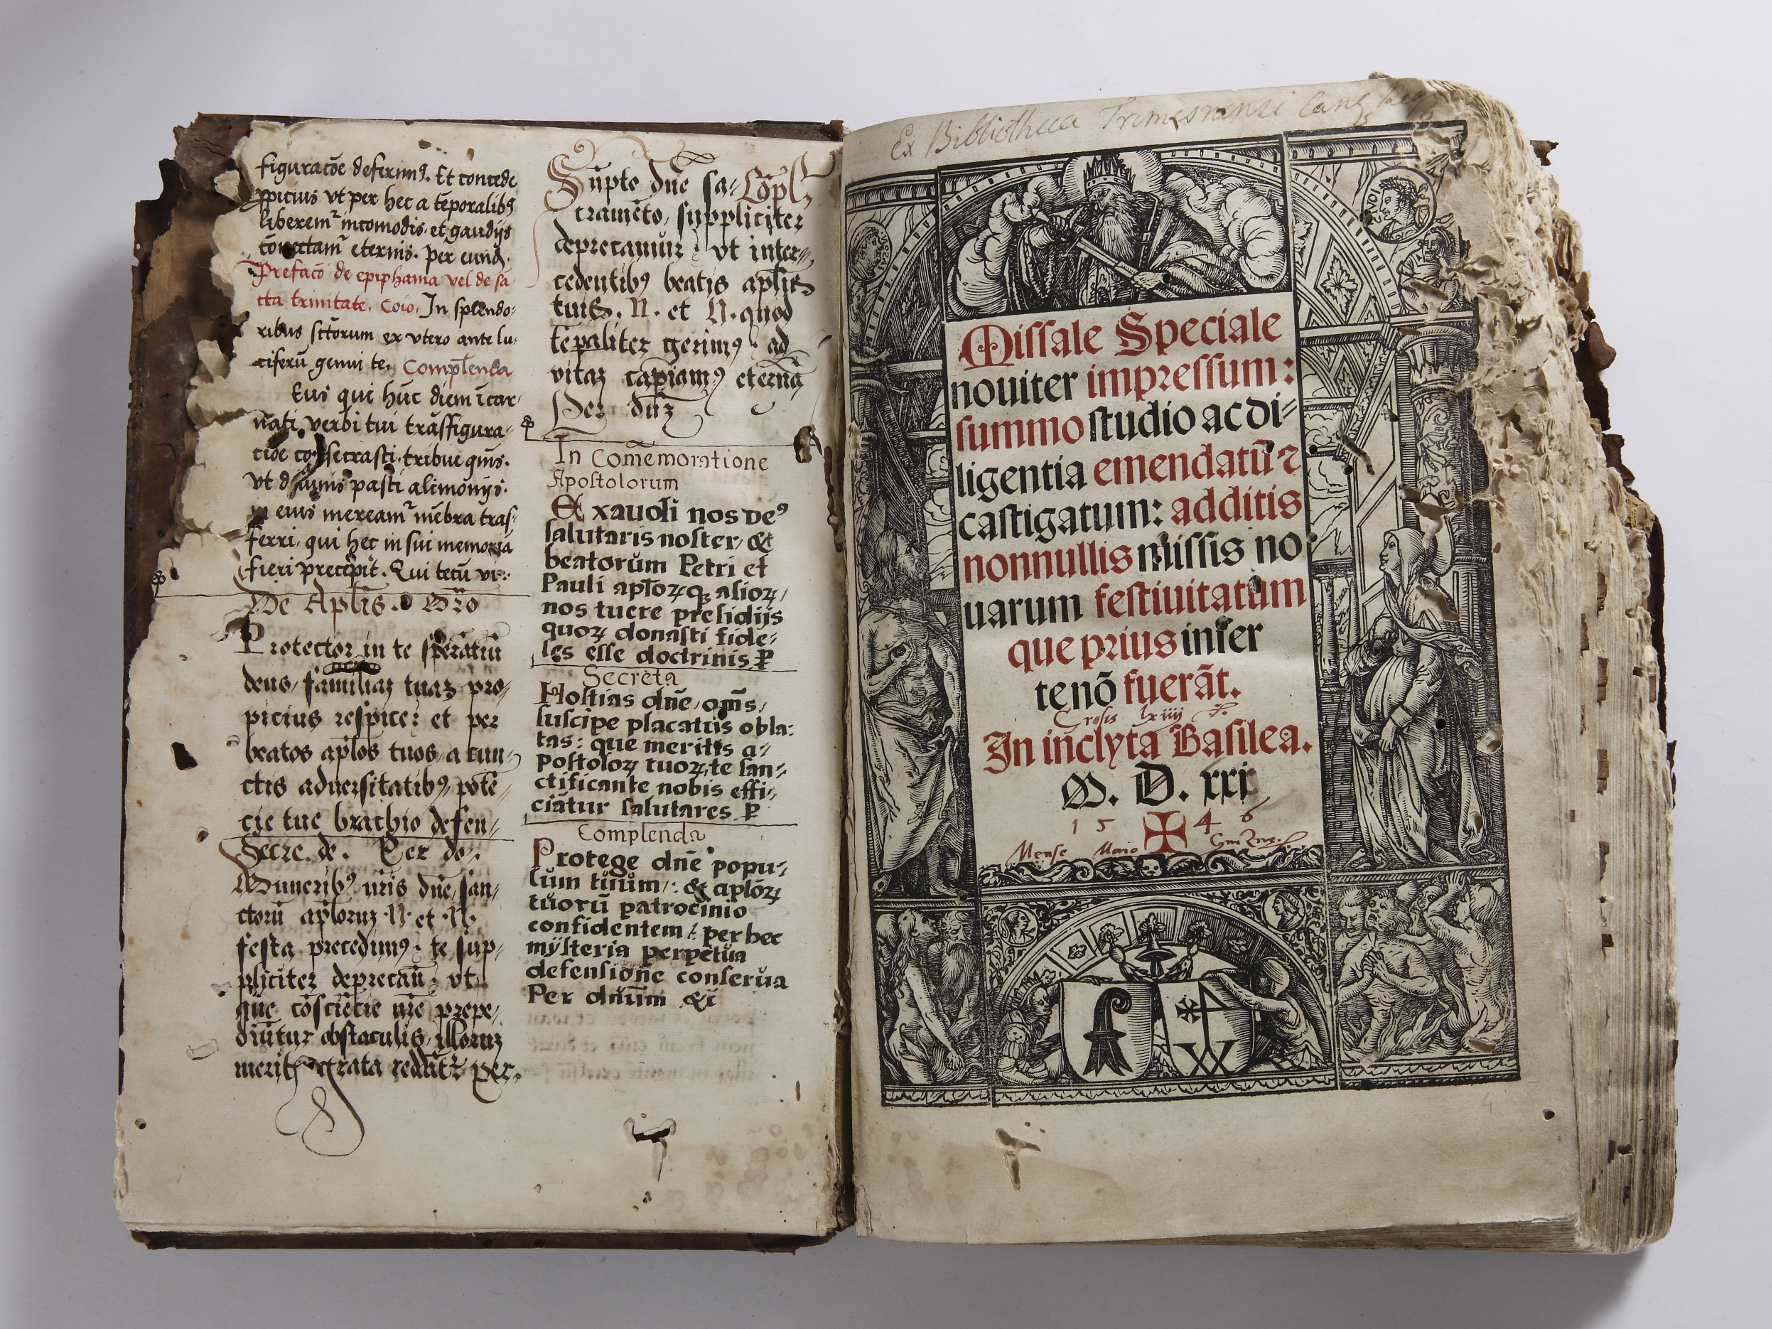 figuracōe deferim9. Et concede
ꝓpicius vt per hec a tēporalib9
liberem̄ incomodis et gaudijs
cōnectam̄ eternis. per eund.
Prefacō de epiphania vel de sā
cta trinitate. Cōio. In splendo-
ribus sctōrum ex vtero ante lu-
ciferū genui te. Complenda
Eus qui hūc diem īcar-
nati verbi tui trāsfigura-
cōe cōsecrasti. tribue q̄ms.
vt diuinis pasti alimonijs.
in eius meream̄ mēbra trās-
ferri, qui hec in sui memoria
fieri precepit. Qui tecū vi-
De Aplis. Oro
Protector in te sperātiū
deus, familiaꝫ tuaꝫ pro-
picius respice: et per
beatos aplos tuos, a cun-
ctis aduersitatib9, potē-
cie tue brachio defen-
Secre. de. Per do.
Munerib9 nris dne san-
ctorū aploruꝫ N. et N.
festa precedim9, te sup-
pliciter deprecam̄, vt
que cōsciēcie nre prepe-
diūtur obstaculis, illoruꝫ
meritis grata reddātr̄ per.
Sūpto dne sa- Compl.
cramēto, suppliciter
deprecamur: vt inter-
cedentib9 beatis aplis
tuis. N. et N. quod
tēpaliter gerim9, ad
vitaꝫ capiam9 eternā
Per dnꝫ
In Comemoratione
Apostolorum
Exauoli nos de9
salutaris noster, &
beatorum Petri et
Pauli aptorꝫ qꝫ aliorꝫ
nos tuere presidijs
quorꝫ donasti fide-
les esse doctrinis P
Secreta
Hostias dne, qms,
suscipe placatus obla-
tas: que meritis a-
postolorꝫ tuorꝫ, te san-
ctificante nobis effi-
ciātur salutares P
Complenda
Protege dne popu-
lum tuum, & aplorꝫ
tuorū patrocinio
confidentem, per hec
mysteria perpetua
defensione conserua
Per dnum &c
Ex Bibliotheca Tremesnensi Can. Reg.
Missale Speciale
nouiter impressum:
summo studio ac di-
ligentia emendatū ⁊
castigatum: additis
nonnullis missis no
uarum festiuitatum
que prius inser
te nō fuerāt.
Grosis lxiiij
In inclyta Basilea.
M. D. xxi
1 5 4 6
Mense Maio
4